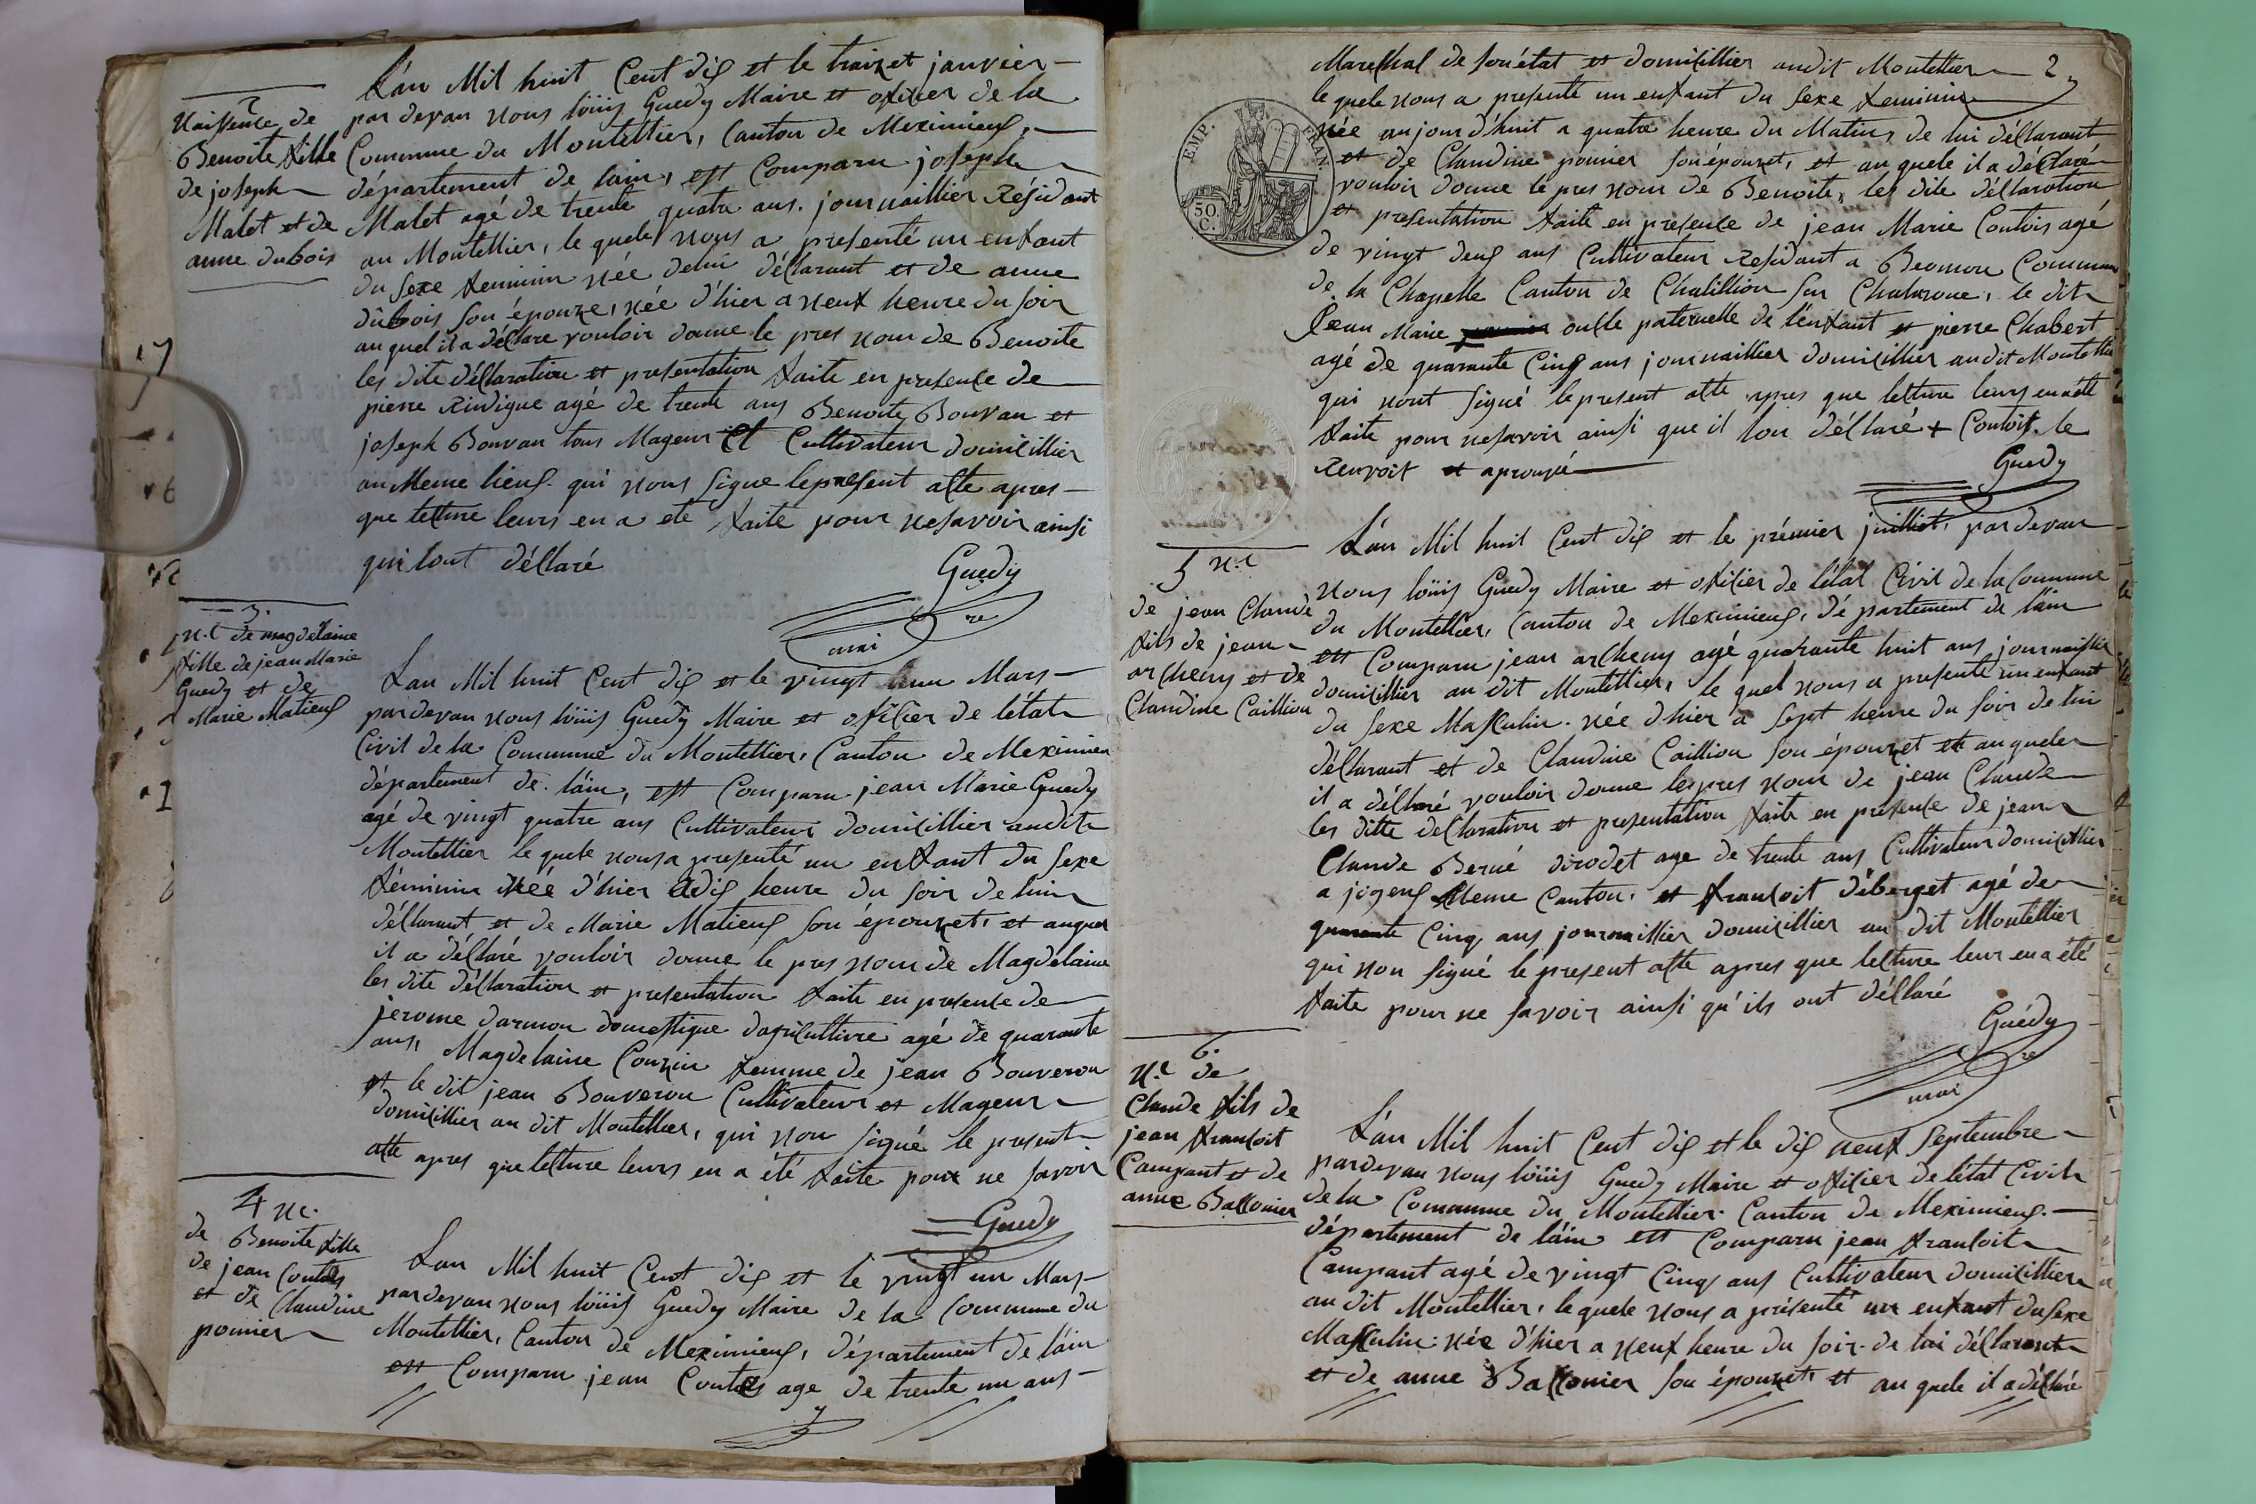 2
Naissence de
Benoite fille
de joseph
Malet et de
anne dubois
L'an Mil huit Cent dix et le traizet janvier
par devan nous loüis Guedy Maire et oficier de la
Commune du Montellier, Canton de Meximieux,
département de l'ain, est Comparu joseph
Malet agé de trente quatre ans. journaillier Résidant
au Montellier, le quele nous a presenté un enfant
du sexe feminin née de lui déclarant et de anne
dubois son épouze, née d'hier a neuf heure du soir
au quel il a déclare vouloir donne le pres nom de Benoite
les dite déclaration et presentation faite en presence de
pierre Rindigue agé de trente ans Benoite Bouvan et
joseph Bouvan tous Mageur et Cultivateur domicillier
au Meme lieux. qui nous signe le present acte apres
que lecture leurs en a eté faite pour ne savoir ainsi
qui l'out déclaré
Guedy
maire
3.
n.e de magdelaine
fille de jean Marie
Guedy et de
Marie Matieux
L'an Mil huit Cent dix et le vingt hun Mars
par devan nous loüis Guedy Maire et oficier de l'état
Civil de la Commune du Montellier, Canton de Meximieu
département de l'ain, est Comparu jean Marie Guedy
agé de vingt quatre ans Cultivateur domicillier audit
Montellier le quele nous a presenté un enfant du sexe
féminin née d'hier a dix heure du soir de lui
déclarant et de Marie Matieux son épouzet, et auquel
il a déclaré vouloir donne le pres nom de Magdelaine
les dite déclaration et presentation faite en presence de
jerome darmon domestique d'agriculture agé de quarante
ans, Magdelaine Couzin femme de jean Bouveron
et le dit jean Bouveron Cultivateur et Mageur
domicillier au dit Montellier, qui non signé le present
acte apres que lecture leurs en a été faite pour ne savoir
Guedy
4 ne.
de Benoite fille
de jean Coutois
et de Claudine
pounier
L'an Mil huit Cent dix et le vingt un Mars
par devan nous loüis Guedy Maire de la Commune du
Montellier, Canton de Meximieux, département de l'ain
est Comparu jean Coutois age de trente un ans
2
Marechal de son état et domicillier audit Montellier
le quele nous a presenté un enfant du sexe feminin
née aujourd'huit a quatre heure du Matin, de lui déclarant
et de Claudine pounier son épouzet, et au quele il a déclaré
vouloir donne le pres nom de Benoite, les dite déclaration
et presentation faite en presence de jean Marie Coutois agé
de vingt deux ans Cultivateur residant a Beomon Commun
de la Chapelle Canton de Chalillion sur Chalarone, le dit
Jean Marie oncle paternelle de l'enfant et pierre Chabert
agé de quarante Cinq ans journaillier domicillier audit Montellie
qui nont signé le present acte apres que lecture leurs en a été
faite pour ne savoir ainsi que il l'on déclaré + Coutoit. le
renvoit et aprouvé
Guedy
EMP. FRAN.
50. C.
5 n.e
de jean Claude
fils de jean
archeny et de
Claudine Caillion
L'an Mil huit Cent dix et le prémier juilliet, par devan
nous loüis Guedy Maire et oficier de l'état Civil de la Commune
du Montellier, Canton de Meximieux, département de l'ain
est Comparu jean archeny agé quarante huit ans journaillier
domicillier au dit Montellier, le quel nous a presenté un enfant
du sexe Masculin. née d'hier a sept heure du soir de lui
déclarant et de Claudine Caillion son épouzet et au quele
il a déclaré vouloir donne les pres nom de jean Claude
les ditte declaration et presentation faite en présence de jean
Claude Berné dirodet age de trente ans Cultivateur domicillier
a joyeux Meme Canton. et francoit déberget agé de
quarante Cinq ans journaillier domicillier au dit Montellier
qui non signé le present acte apres que lecture leur en a été
faite pour ne savoir ainsi qu'ils ont déclaré
Guédy
maire
6.
n.e de
Claude fils de
jean francoit
Campant et de
anne Ballonier
L'an Mil huit Cent dix et le dix neuf septembre
par devan nous loüis Guedy Maire et oficier de l'état Civil
de la Commune du Montellier. Canton de Meximieux.
département de l'ain est Comparu jean francoit
Campant agé de vingt Cinq ans Cultivateur domicillier
au dit Montellier, le quele nous a présenté un enfant du sexe
Masculin. née d'hier a neuf heure du soir. de lui déclarant
et de anne Ballonier son épouzet, et au quele il a déclaré